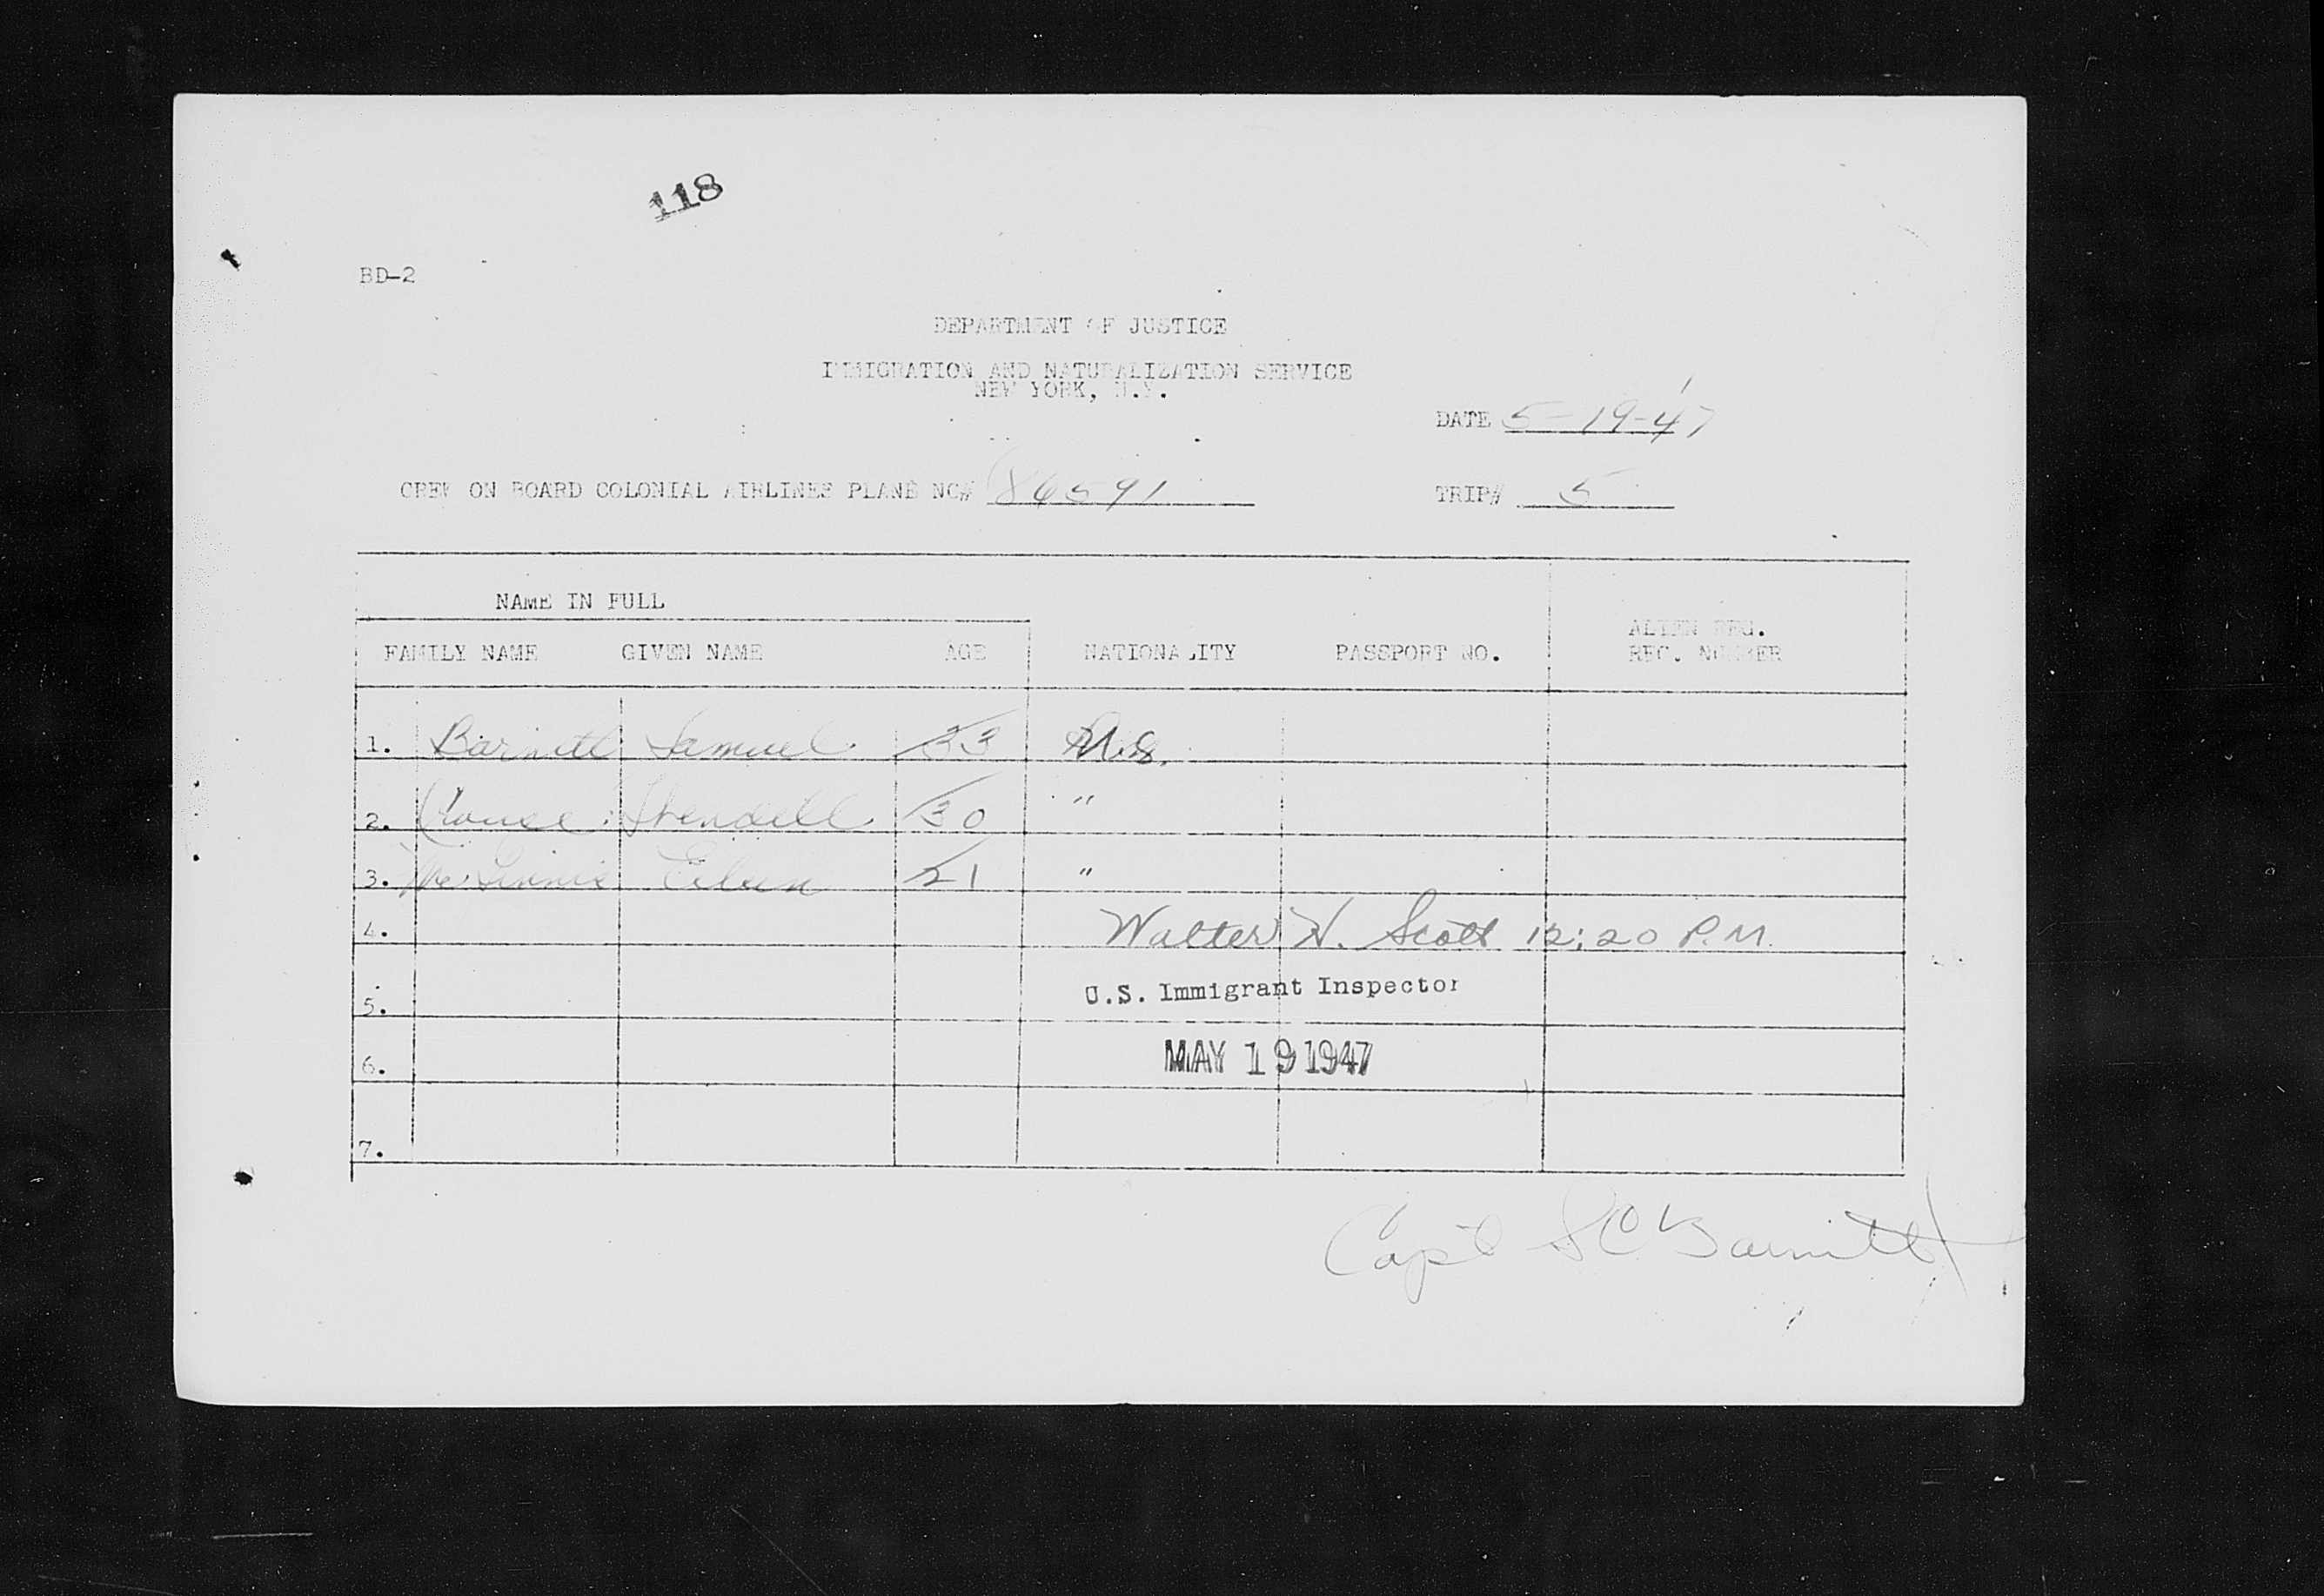 118
BD-2
DEPARTMENT OF JUSTICE
IMMIGRATION AND NATURALIZATION SERVICE
NEW YORK, N.Y.
DATE 5-19-47
CREW ON BOARD COLONIAL AIRLINES PLANE NO# 86591 TRIP# 5
NAME IN FULL
FAMILY NAME GIVEN NAME AGE NATIONALITY PASSPORT NO. ALIEN REG. REC. NUMBER
1. Barnitt Samuel 33 U.S.
2. Wendell 30 "
3. 21 "
4. Walter H. Scott 12:20 P.M.
U.S. Immigrant Inspector
5.
6. MAY 19 1947
7.
Capt S C Barnitt